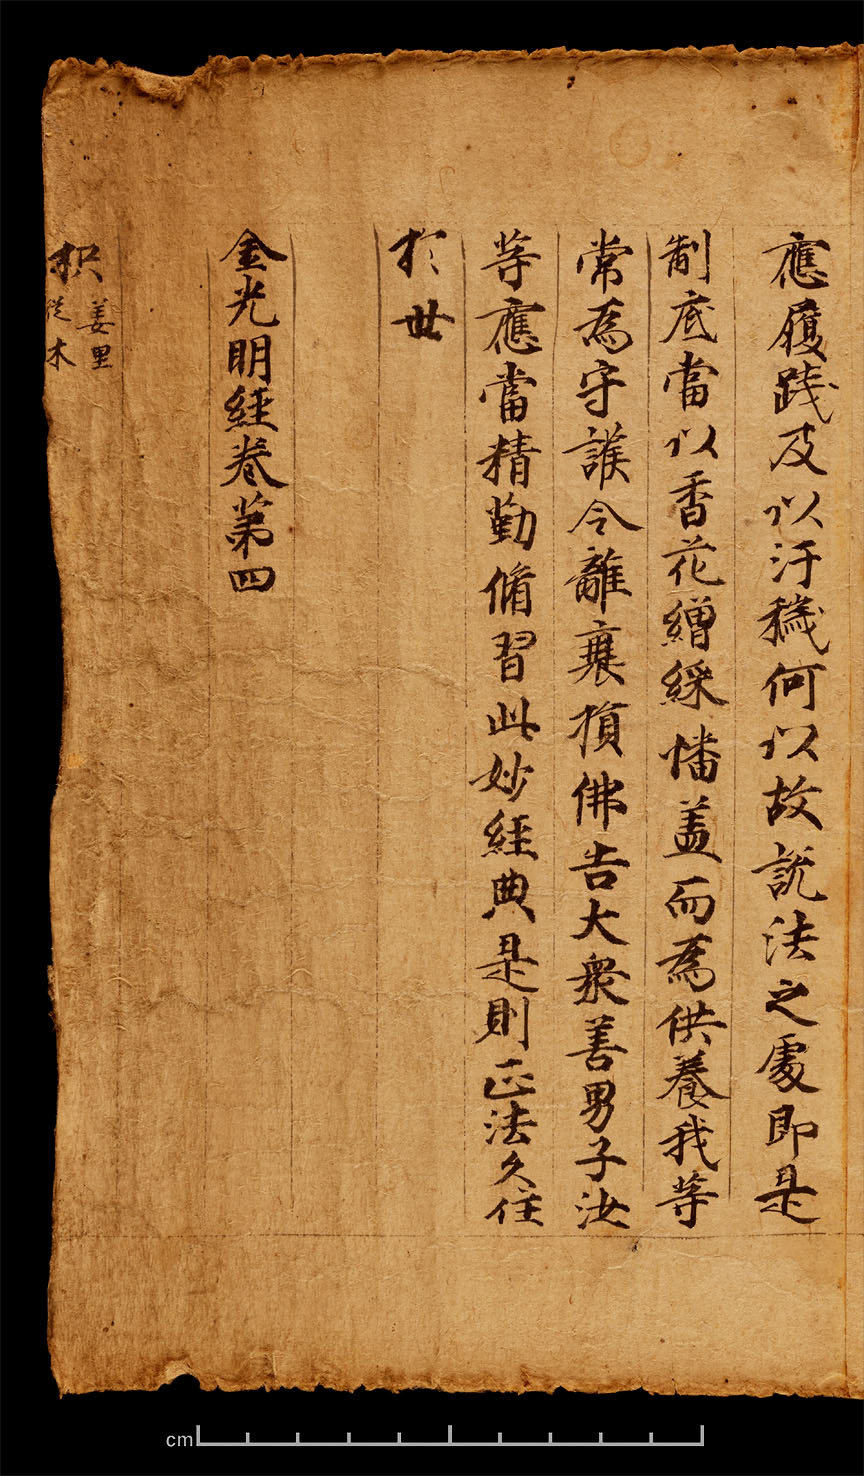 應履踐及以汙穢何以故說法之處即是
制底當以香花繒綵幡盖而為供養我等
常為守護令離衰損佛告大衆善男子汝
等應當精勤脩習此妙經典是則正法久住
於世
金光明經卷第四
枳姜里從木
cm